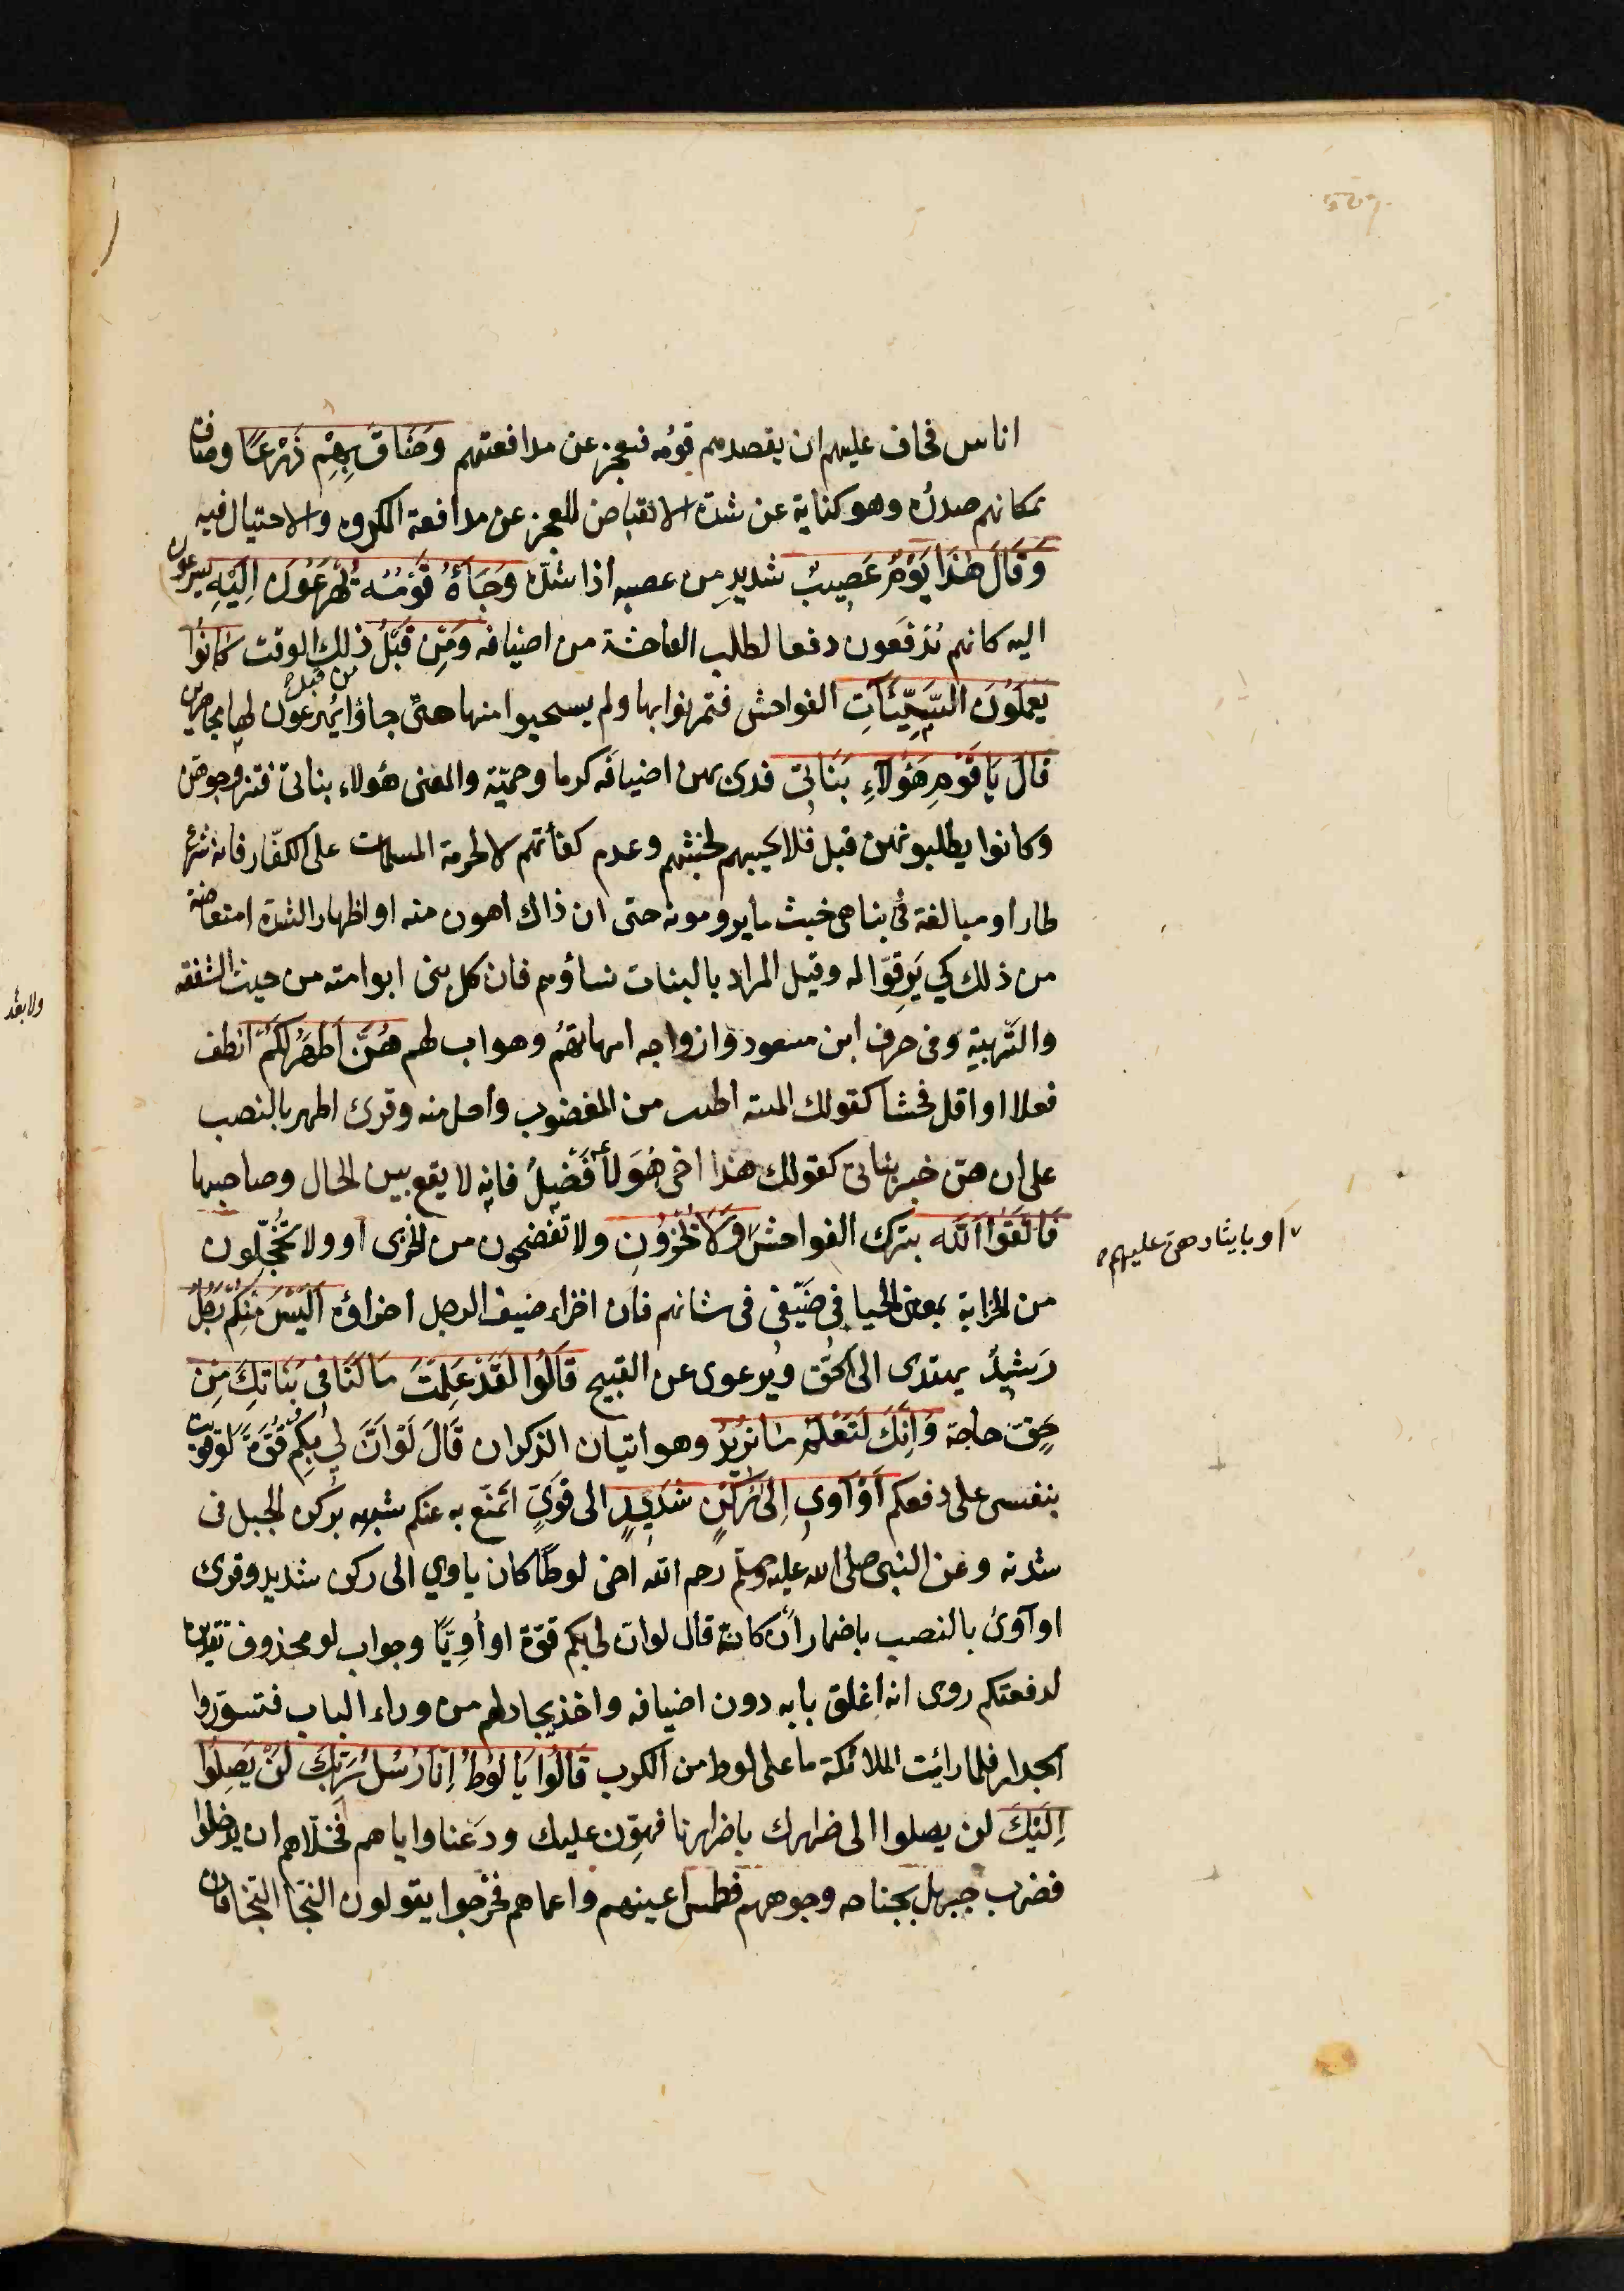 اناس فخاف عليهم ان يقصدهم قومه فيعجز عن مدافعتهم وَضَاقَ بِهِمْ ذَرْعًا وضاق
بمكانهم صدره وهو كناية عن شدة الانقباض للعجز عن مدافعة المكروه والاحتيال فيه
وَقَالَ هٰذَا يَوْمٌ عَصِيبٌ شديد من عصبه اذا شدّه وَجَآءَهُ قَوْمُهُ يُهْرَعُونَ اِلَيْهِ يسرعون
اليه كانهم يُدْفَعون دفعا لطلب الفاحشة من اضيافه وَمِنْ قَبْلُ ذلك الوقت كَانُوا
من قبله
يَعْمَلُونَ السَّيِّئَآتِ الفواحش فتمرنوا بها ولم يستحيوا منها حتى جاؤا يُهرعون لها مجاهرين
قَالَ يَا قَوْمِ هَؤُلَآءِ بَنَاتِى فدى بهن اضيافه كرما وحميّة والمعنى هؤلاء بناتى فتزوجوهن
وكانوا يطلبونهن قبل فلا يجيبهم لخبثهم وعدم كفأتهم لا لحرمة المسلمات على الكفّار فانه شرع
طار او مبالغة فى تناهى خبث ما يرومونه حتى ان ذاك اهون منه او اظهار الشدة امتعاضه
من ذلك كي يَرِقّوا له وقيل المراد بالبنات نساؤهم فان كل نبى ابو امته من حيث الشفقه
والتّربية وفى حرف ابن مسعود وازواجه امهاتهُم وهو اب لهم هُنَّ اَطْهَرُ لَكُمْ انظف
فعلا او اقل فحشا كقولك الميتة اطيب من المغضوب واحل منه وقرئ اطهر بالنصب
على ان هنّ خبر بناتى كقولك هذا اخى هُوَ لا فَضْلٌ فانه لا يقع بين الحال وصاحبها
فَاتَّقُوا اللَّه بترك الفواحش وَلَا تُخْزُونِ ولا تفضحون من الخزى او ولا تُخجّلون
او بايثارهن عليهم
من الخزاية بمعنى الحيا فِى ضَيْفِى فى شانهم فان اخزاء ضيف الرجل اخزاؤه اَلَيْسَ مِنْكُمْ رَجُلٌ
رَشِيدٌ يهتدى الى الحق ويرعوى عن القبيح قَالُوا لَقَدْ عَلِمْتَ مَا لَنَا فِى بَنَاتِكَ مِنْ
حَقٍّ حاجة وَاِنَّكَ لَتَعْلَمُ مَا نُرِيدُ وهو اتيان الذكران قَالَ لَوْ اَنَّ لِي بِكُمْ قُوَّةً لو قويت
بنفسى على دفعكم اَوْ آوِي اِلَىٰ رُكْنٍ شَدِيدٍ الى قوىٍّ اتمنّع به عنكم شبهه بركن الجبل فى
شدته وعن النبى صلى الله عليه وسلم رحم الله اخى لوطًا كان ياوي الى ركن شديد وقرئ
او آوىَ بالنصب باضمار أن كانه قال لو ان لى بكم قوّة او أُوِيًّا وجواب لو محذوف تقديره
لدفعتكم روى انه اغلق بابه دون اضيافه واخذ يجادلهم من وراء الباب فتسوّروا
الجدار فلما رات الملائكة ما على لوط من الكرب قَالُوا يَا لُوطُ اِنَّا رُسُلُ رَبِّكَ لَنْ يَصِلُوا
اِلَيْكَ لن يصلوا الى ضرارك باضرارنا فهوّن عليك ودَعنا واياهم فخلّاهم ان يدخلوا
فضرب جبريل بجناحه وجوههم فطمس اعينهم واعماهم فخرجوا يقولون النجا النجا فان
ولا بعد